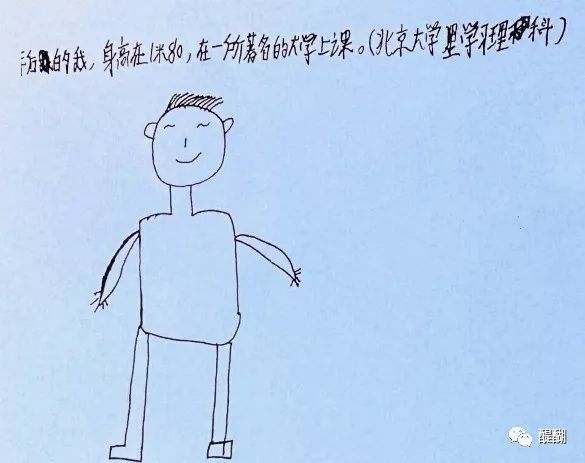 的我，身高在1米80，在一所著名的大学上课。（北京大学里学习理科）
醍醐